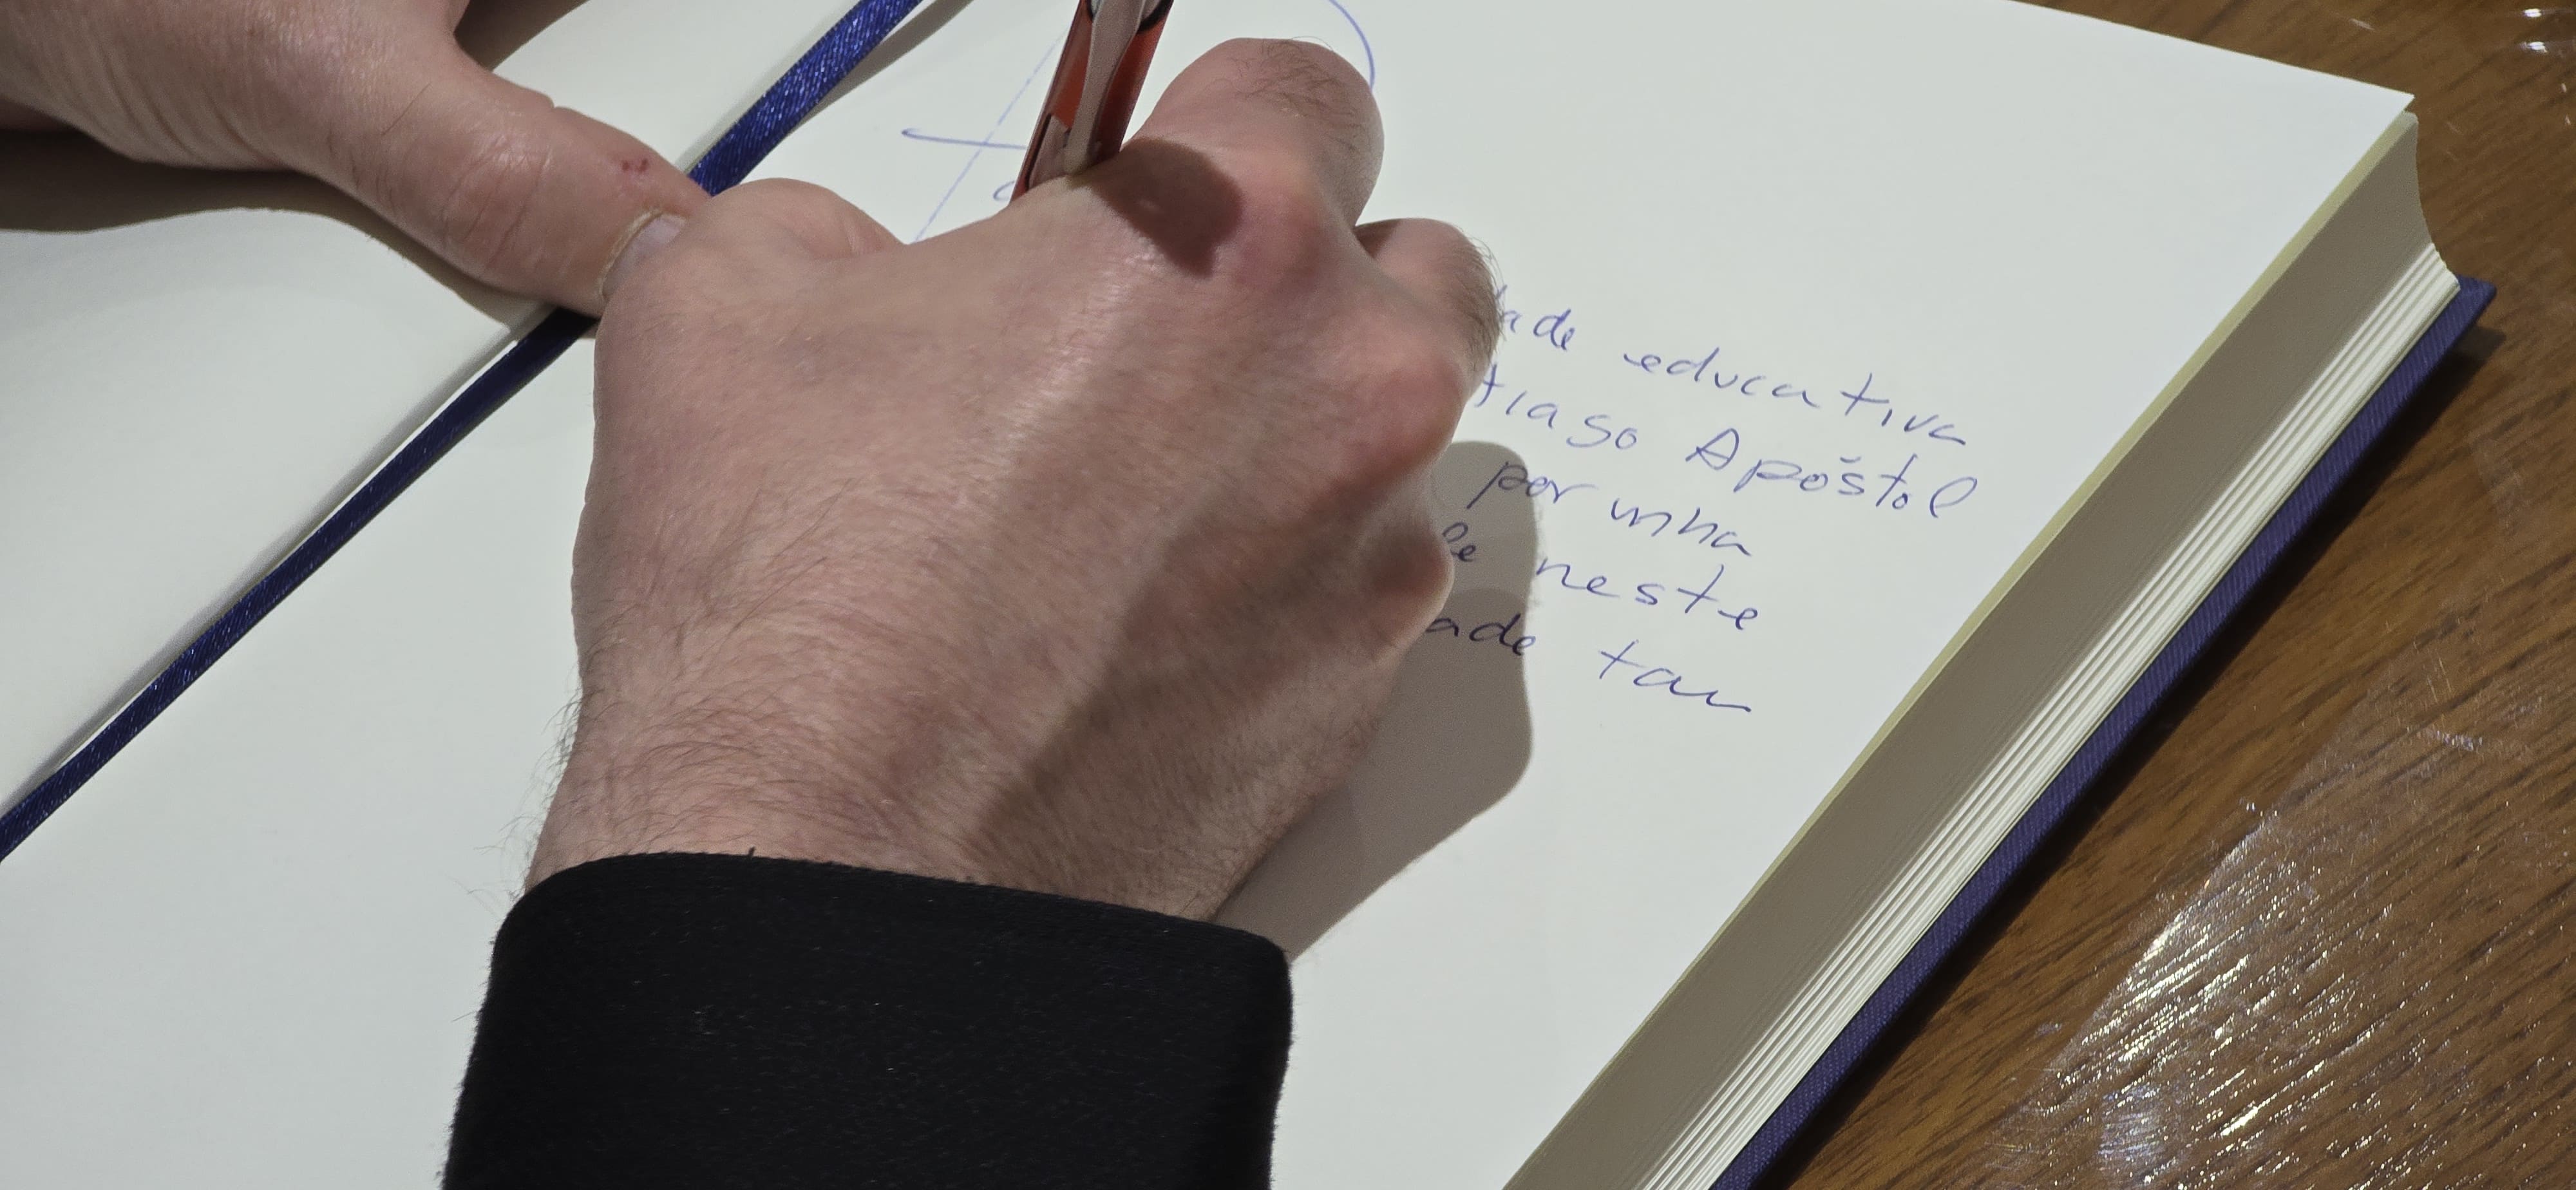 ade educativa
tiago Apóstol
por unha
le neste
ade tan